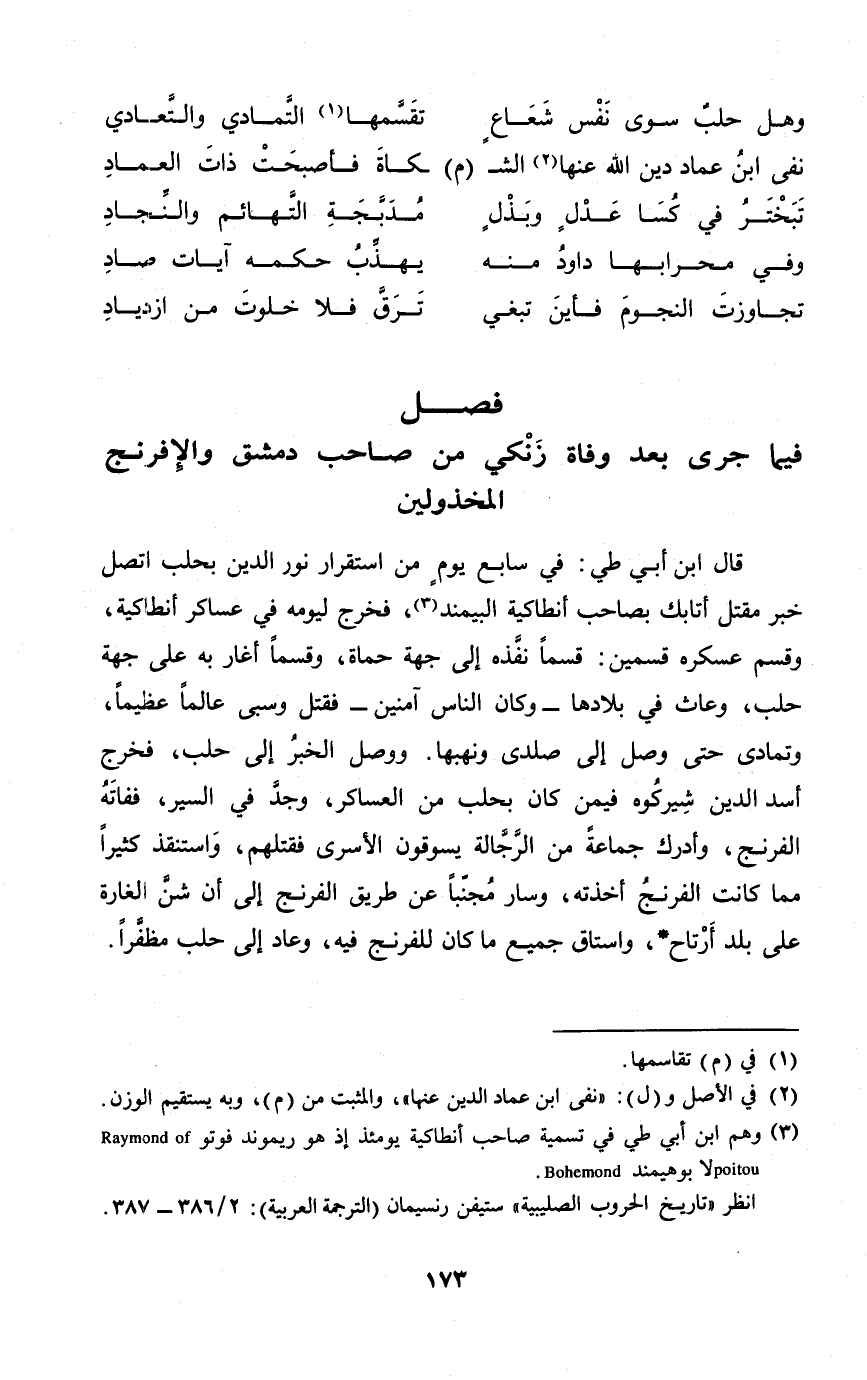 وهـل حلبٌ سـوى نَفْس شَعَـاعٍ تقَسَّمهـا(١) التَّمـادي والتَّعـادي
نفى ابنُ عماد دين الله عنها(٢) الشـ (م) ـكـاةَ فـأصبحَتْ ذاتَ العمـادِ
تَبَخْتَـرُ في كُسَـا عَـدْلٍ وبَذْلٍ مُـدَبَّجَـةِ التَّهـائم والنِّجـادِ
وفـي محـرابـهـا داودُ مـنـه يـهـذِّبُ حـكـمـه آيـات صـادِ
تجـاوزتَ النجـومَ فـأينَ تبغي تَـرَقَّ فـلا خلوتَ مـن ازديـادِ
فصـــل
فيما جرى بعد وفاة زَنْكي من صاحب دمشق والإفرنج
المخذولين
قال ابن أبي طي: في سابع يومٍ من استقرار نور الدين بحلب اتصل
خبر مقتل أتابك بصاحب أنطاكية البيمند(٣)، فخرج ليومه في عساكر أنطاكية،
وقسم عسكره قسمين: قسماً نفَّذه إلى جهة حماة، وقسماً أغار به على جهة
حلب، وعاث في بلادها ــ وكان الناس آمنين ــ فقتل وسبى عالماً عظيماً،
وتمادى حتى وصل إلى صلدى ونهبها. ووصل الخبرُ إلى حلب، فخرج
أسد الدين شِيركُوه فيمن كان بحلب من العساكر، وجدَّ في السير، ففاتَهُ
الفرنج، وأدرك جماعةً من الرَّجَّالة يسوقون الأسرى فقتلهم، وَاستنقذ كثيراً
مما كانت الفرنجُ أخذته، وسار مُجنّباً عن طريق الفرنج إلى أن شنَّ الغارة
على بلد أَرْتاح*، واستاق جميع ما كان للفرنج فيه، وعاد إلى حلب مظفَّراً.
(١) في (م) تقاسمها.
(٢) في الأصل و(ل): «نفى ابن عماد الدين عنها»، والمثبت من (م)، وبه يستقيم الوزن.
(٣) وهم ابن أبي طي في تسمية صاحب أنطاكية يومئذ إذ هو ريموند فوتو Raymond of
poitou لا بوهيمند Bohemond.
انظر «تاريخ الحروب الصليبية» ستيفن رنسيمان (الترجمة العربية): ٢/ ٣٨٦ ــ ٣٨٧.
١٧٣